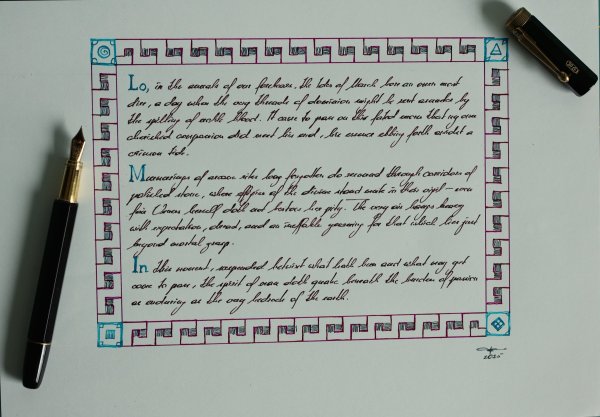 Lo, in the annals of our forebears, the Ides of March bore an omen most
dire, a day when the very threads of dominion might be rent asunder by
the spilling of noble blood. It came to pass on the fated morn that my own
cherished companion did meet his end, his essence ebbing forth amidst a
crimson tide.
Murmurings of arcane rites long forgotten do resound through corridors of
polished stone, where effigies of the divine stand mute in their vigil – even
fair Venus herself doth not bestow her pity. The very air hangs heavy
with expectation, dread, and an ineffable yearning for that which lies just
beyond mortal grasp.
In this moment, suspended betwixt what hath been and what may yet
come to pass, the spirit of man doth quake beneath the burden of passion
as enduring as the very bedrock of the earth.
2025